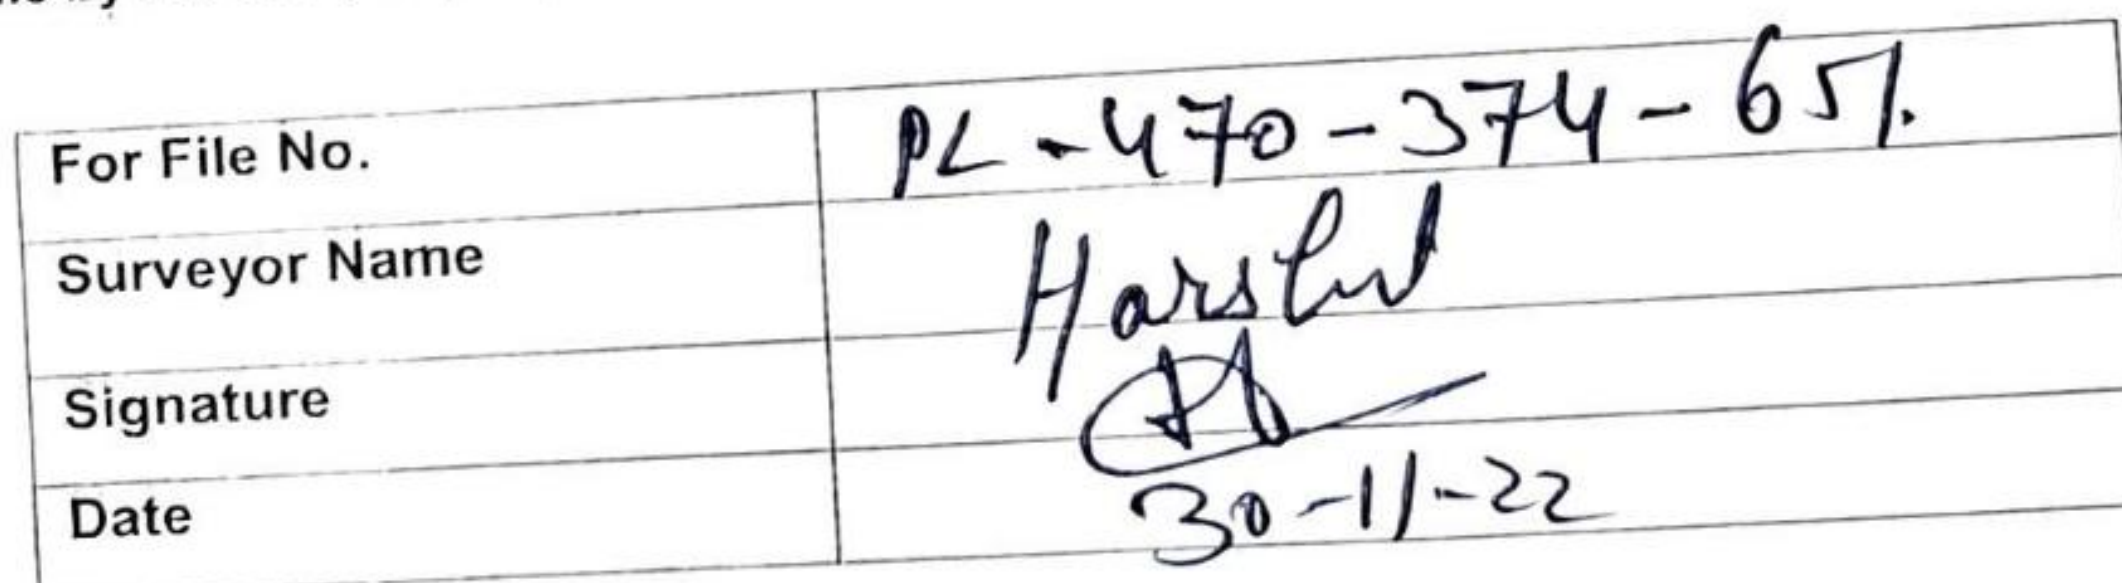 For File No. PL-470-374-651.
Surveyor Name
Signature
Date 30-11-22